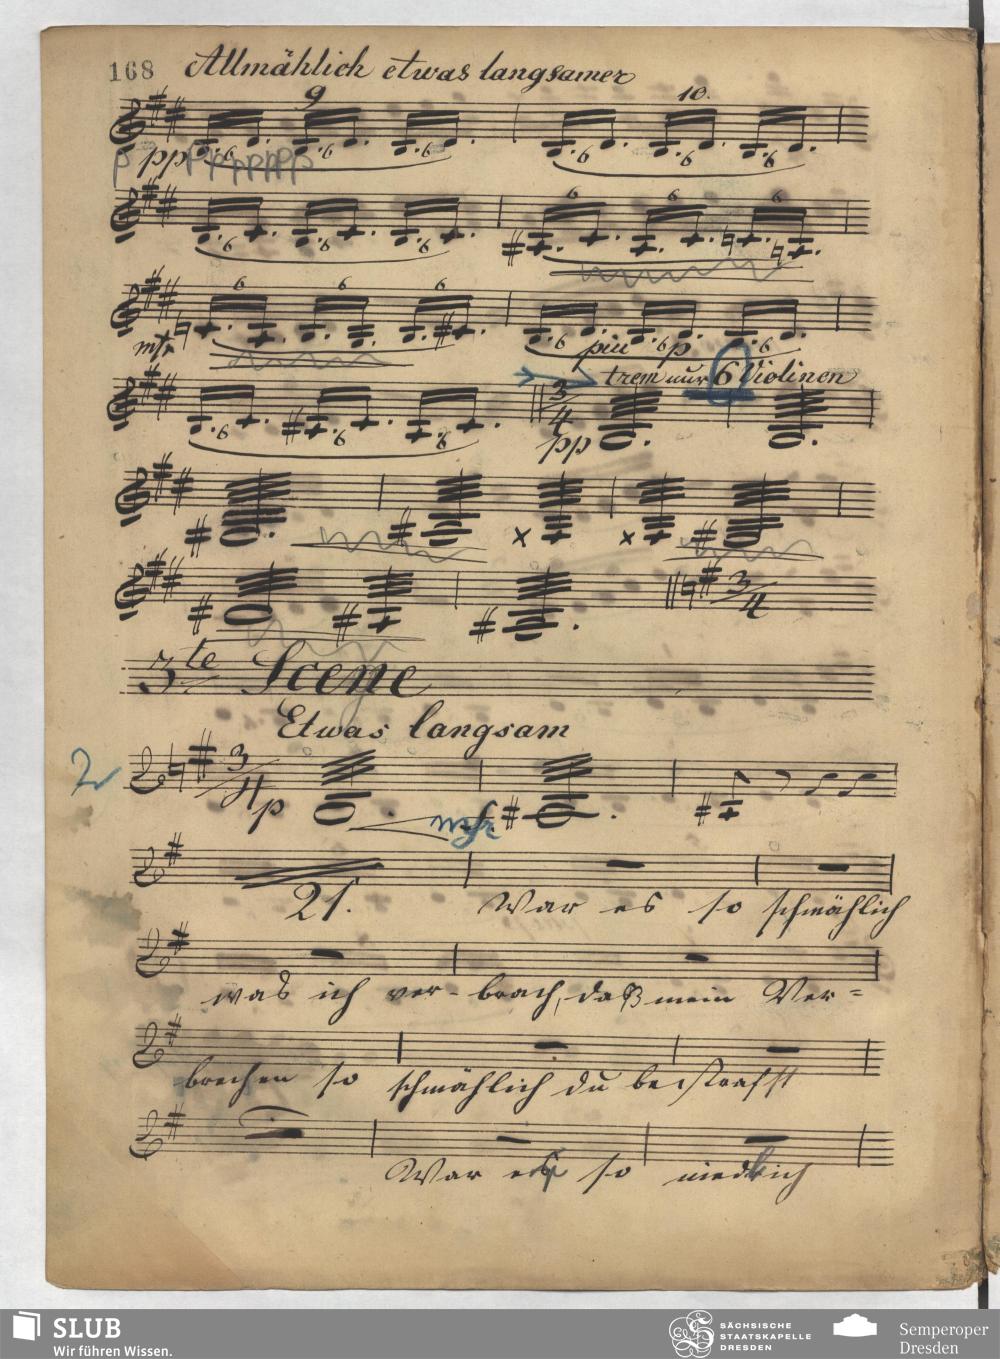 168 Allmählich etwas langsamer
9 10.
p pp p p p p p p p
6 6 6 6 6 6
6 6 6 6 6 6
6 6 6
mf 6 6 6
piu p
trem nur 6 Violinen
6 6 6 3/4
pp
3/4
3te Scene
Etwas langsam
3/4 p mf
21. War es so schmählich
was ich ver- brach, daß mein Ver=
brechen so schmählich du bestrafst
War es so niedrich
SLUB
Wir führen Wissen.
SÄCHSISCHE
STAATSKAPELLE
DRESDEN
Semperoper
Dresden